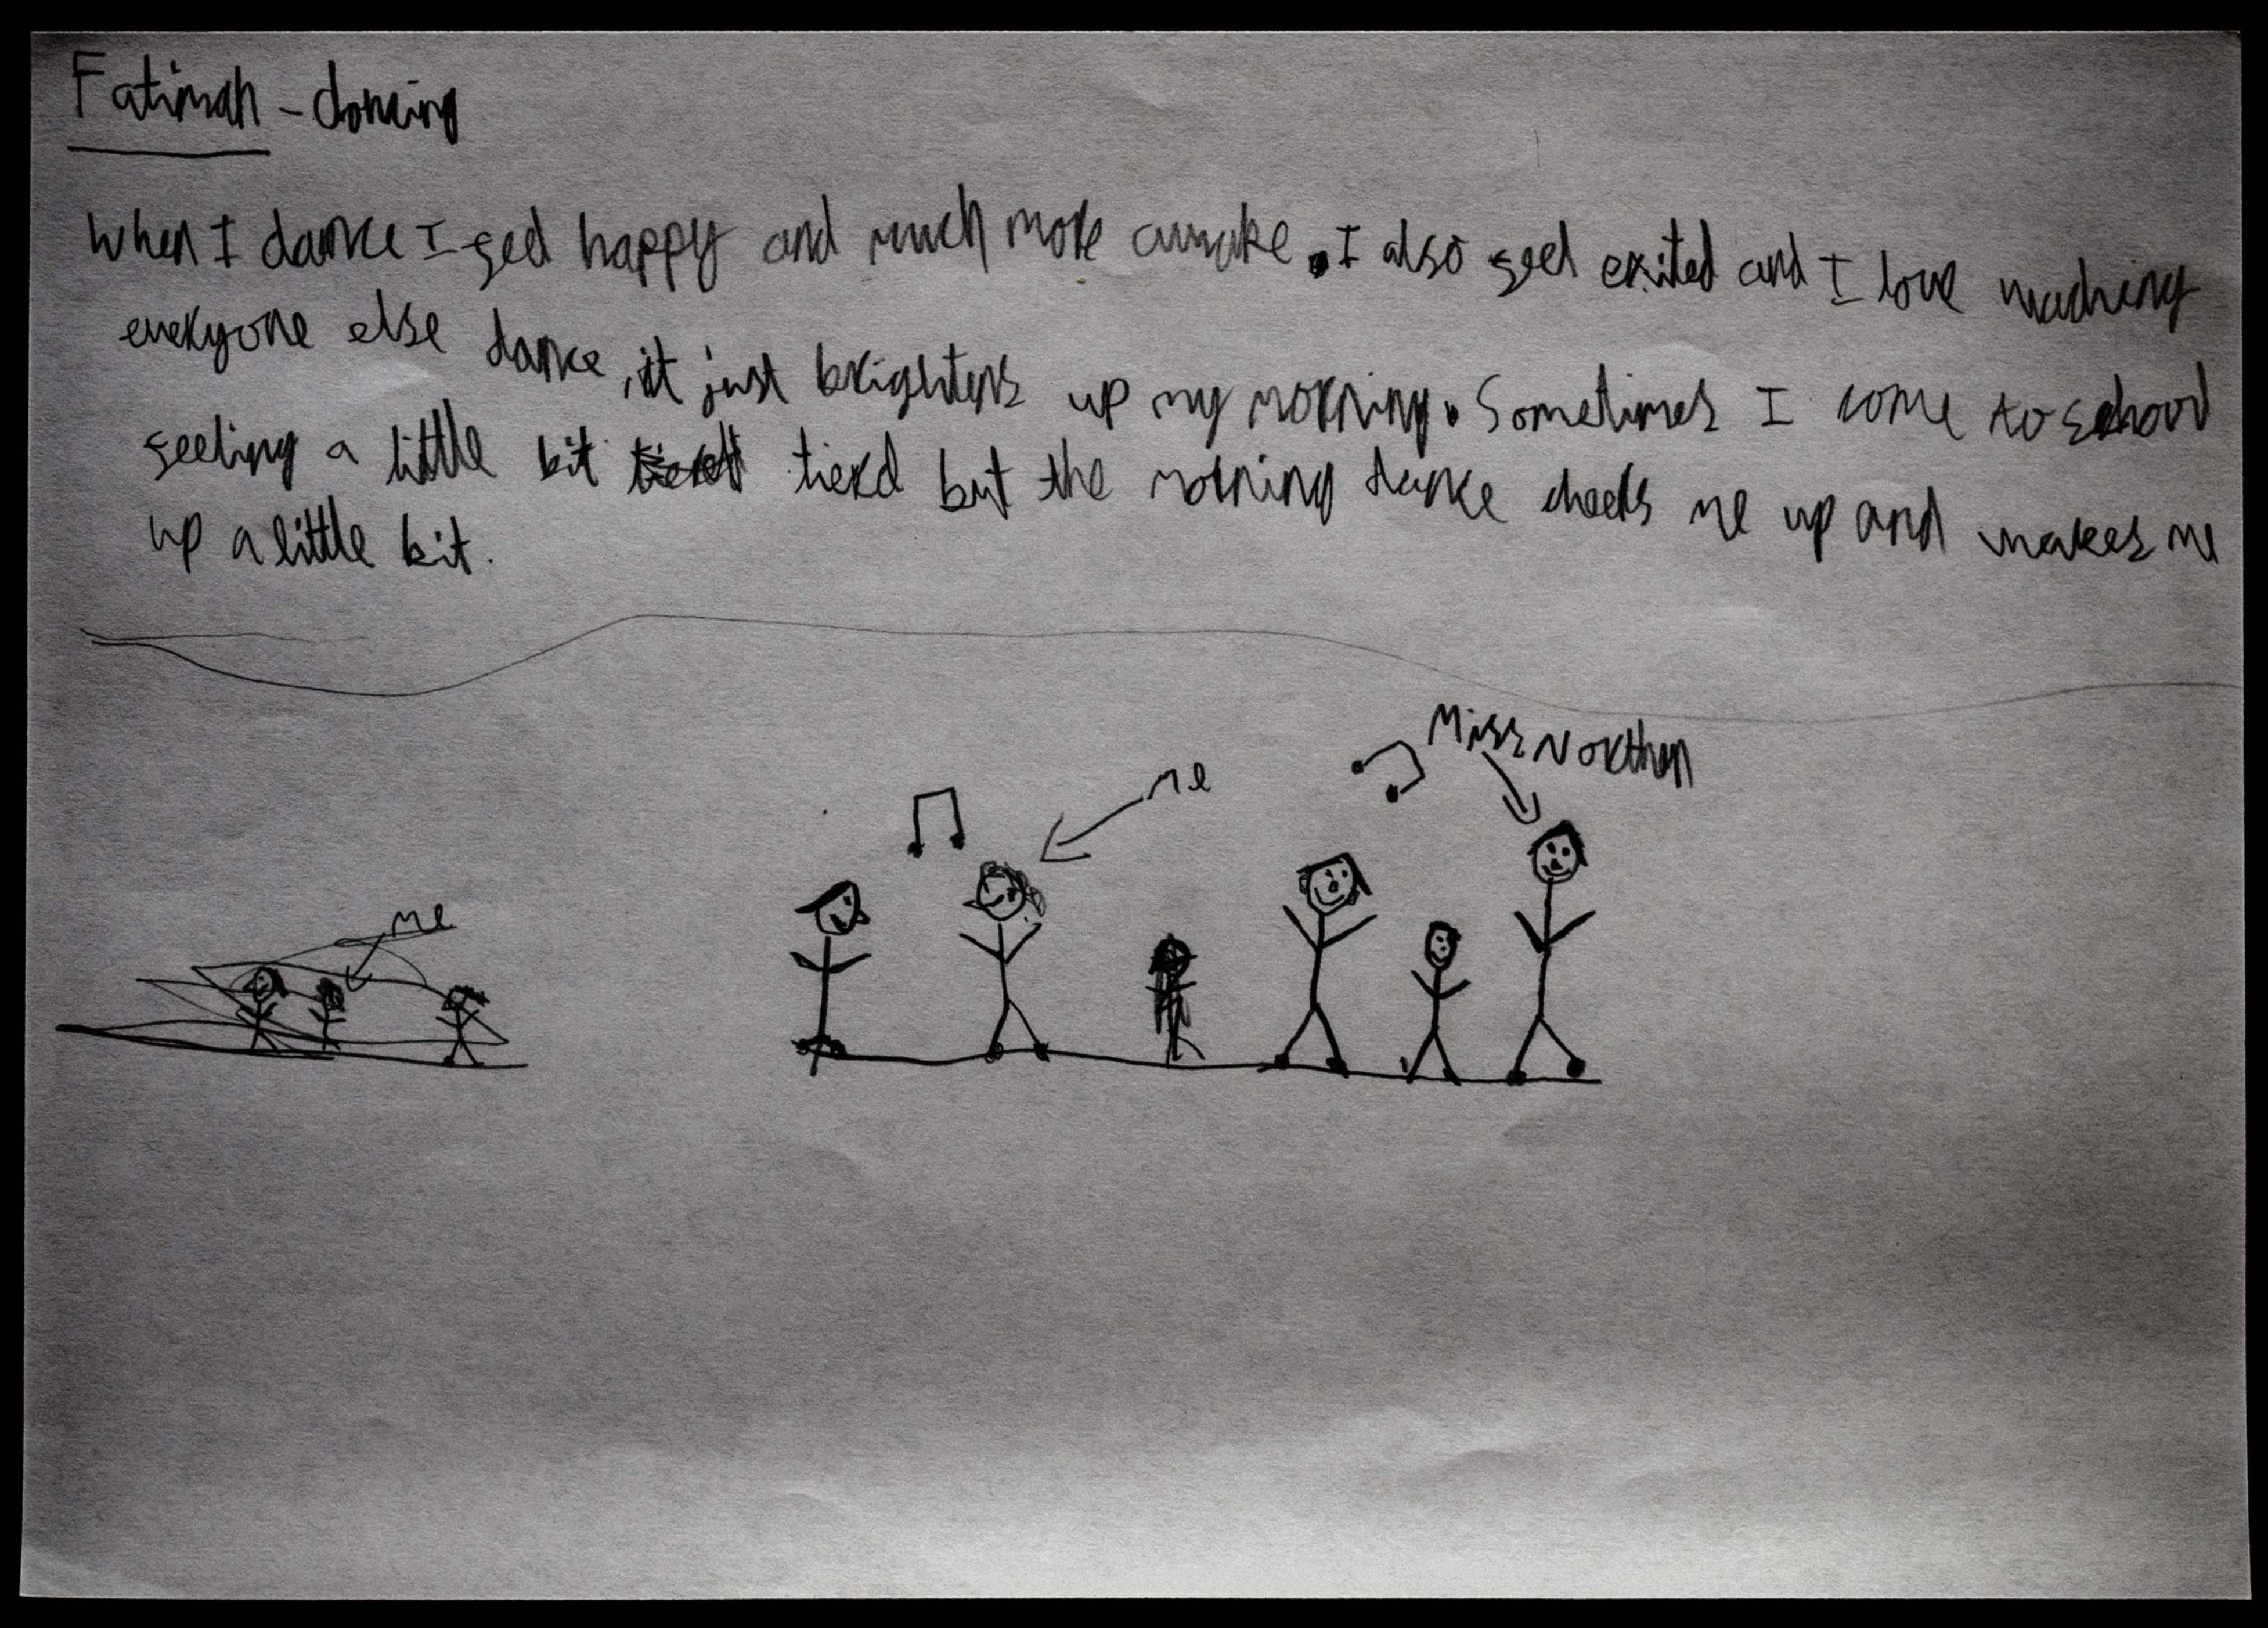 Fatimah - dancing
When I dance I feel happy and much more awake. I also feel exited and I love waching
everyone else dance, it just brightens up my morning. Sometimes I come to school
feeling a little bit tierd but the morning dance cheers me up and makes me
up a little bit.
Miss Northen
me
me